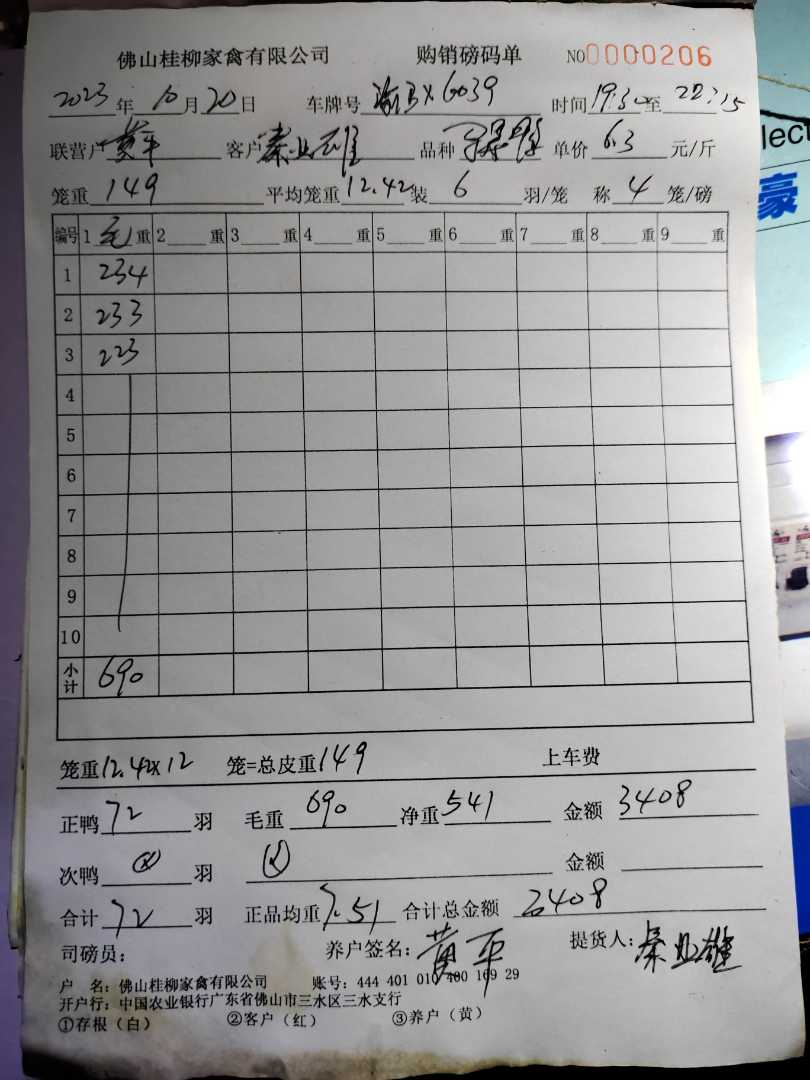 佛山桂柳家禽有限公司 购销磅码单 NO0000206
2023年10月20日 车牌号 X6039 时间19:30至22:15
联营户 黄平 客户 秦业雄 品种 单价 6.3 元/斤
笼重 149 平均笼重 12.42 装 6 羽/笼 称 4 笼/磅
编号 1 毛 重 2 重 3 重 4 重 5 重 6 重 7 重 8 重 9 重
1 234
2 233
3 223
4
5
6
7
8
9
10
小计 690
笼重12.42×12 笼=总皮重149 上车费
正鸭 72 羽 毛重 690 净重 541 金额 3408
次鸭 羽 金额
合计 72 羽 正品均重 7.51 合计总金额 3408
司磅员: 养户签名: 黄平 提货人: 秦业雄
户 名: 佛山桂柳家禽有限公司 账号: 444 401 010 400 109 29
开户行: 中国农业银行广东省佛山市三水区三水支行
①存根(白) ②客户(红) ③养户(黄)
lect
豪